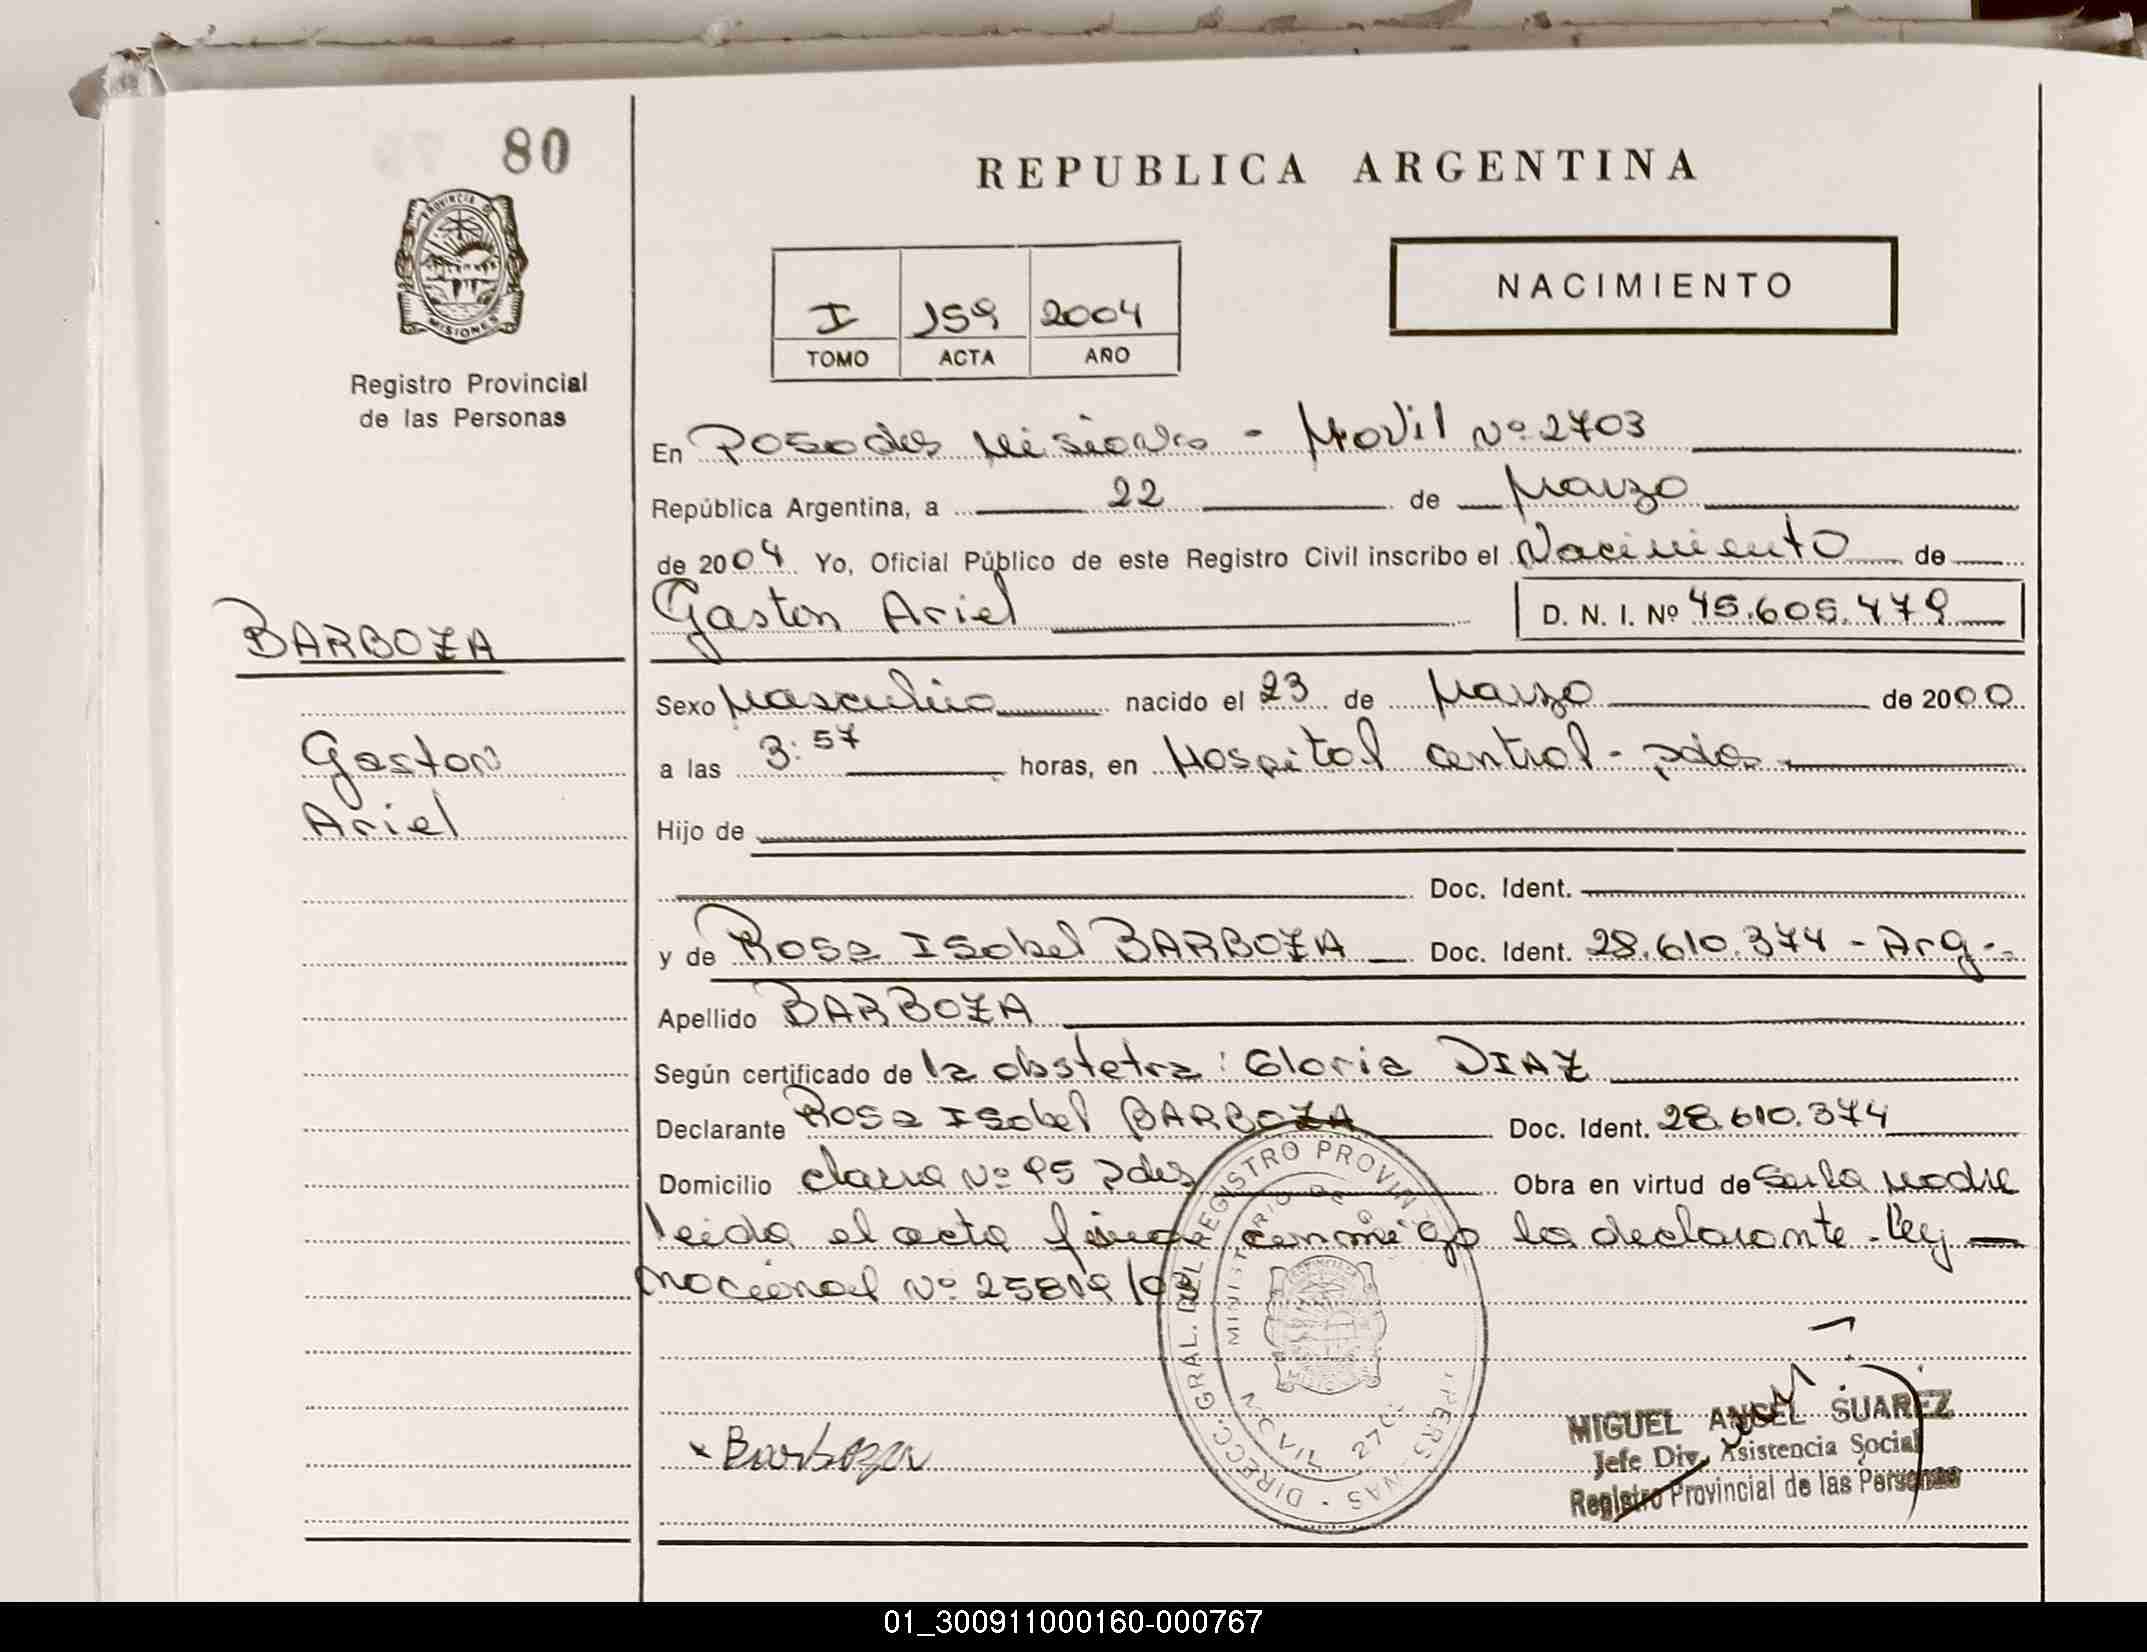 80
REPUBLICA ARGENTINA
PROVINCIA D
MISIONES
Registro Provincial
de las Personas
I 159 2004
TOMO ACTA AÑO
NACIMIENTO
En Posadas Misiones - Movil Nº 2703
República Argentina, a 22 de Marzo
de 2004 Yo, Oficial Público de este Registro Civil inscribo el Nacimiento de
Gaston Ariel D. N. I. Nº 45.605.479
BARBOZA
Gaston
Ariel
Sexo Masculino nacido el 23 de Marzo de 2000
a las 3:57 horas, en Hospital central - pdas.
Hijo de
Doc. Ident.
y de Rosa Isabel BARBOZA Doc. Ident. 28.610.374 - Arg -.
Apellido BARBOZA
Según certificado de la obstetra: Gloria DIAZ
Declarante Rosa Isabel BARBOZA Doc. Ident. 28.610.374
Domicilio Nº 95 pdas Obra en virtud de madre
leida el acta firma conmigo la declarante - Ley
nacional Nº 25819/03
DIRECC. GRAL. DEL REGISTRO PROVIN PERS NAS
MINISTERIO DE G
CIVIL 270
x Barboza
MIGUEL ANGEL SUAREZ
Jefe Div. Asistencia Social
Registro Provincial de las Personas
01_300911000160-000767